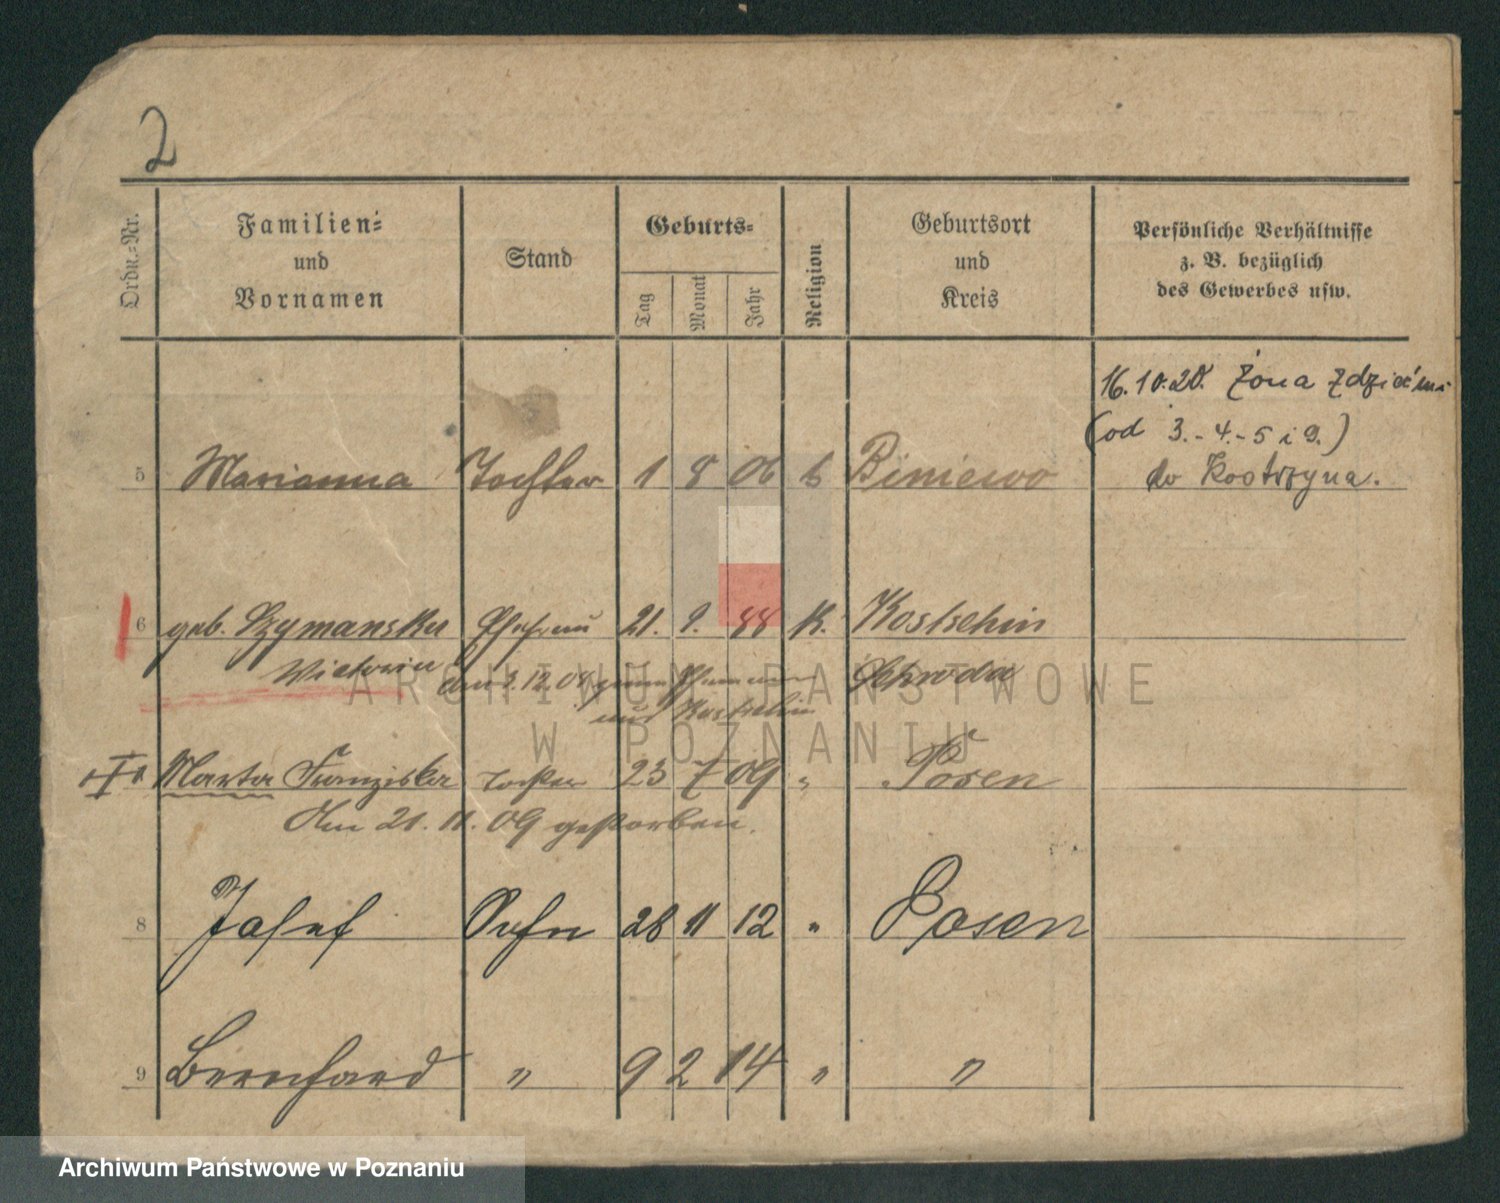 2
Ordn.-Nr.
Familien-
und
Vornamen
Stand
Geburts-
Tag
Monat
Jahr
Religion
Geburtsort
und
Kreis
Persönliche Verhältnisse
z. B. bezüglich
des Gewerbes usw.
16.10.20. Żona z dziećmi
(od 3.-4.-5 i 9.)
do Kostrzyna.
5 Marianna Tochter 1 8 06 k Biniewo
6 geb. Szymanska Ehefrau 21. 9. 88 K. Kostschin
Victoria Schroda
am 3.12.08 zum
aus Kostschin
Marta Franziska Tochter 23 7 09 " Posen
Am 21. 11. 09 gestorben.
8 Josef Sohn 28 11 12 " Posen
9 Bernhard " 9 2 14 " "
ARCHIWUM PAŃSTWOWE
W POZNANIU
Archiwum Państwowe w Poznaniu